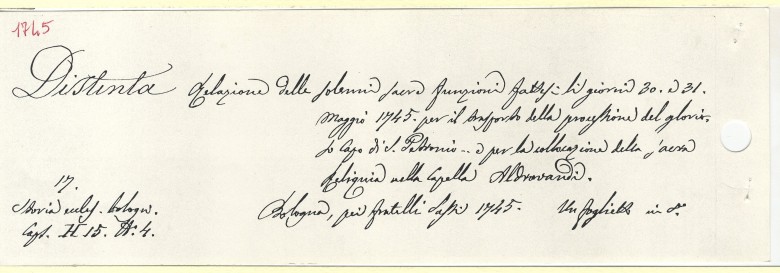 1745
Distinta Relazione delle solenni sacre funzioni fattesi li giorni 30. e 31.
Maggio 1745. per il trasporto della processione del glorio-
so Capo di S. Petronio – e per la collocazione della sacra
Reliquia nella Capella Aldrovandi.
17.
Storia eccles. bologn.
Caps. H 15. N. 4.
Bologna, pei fratelli Sassi 1745. Un foglietto in 8.